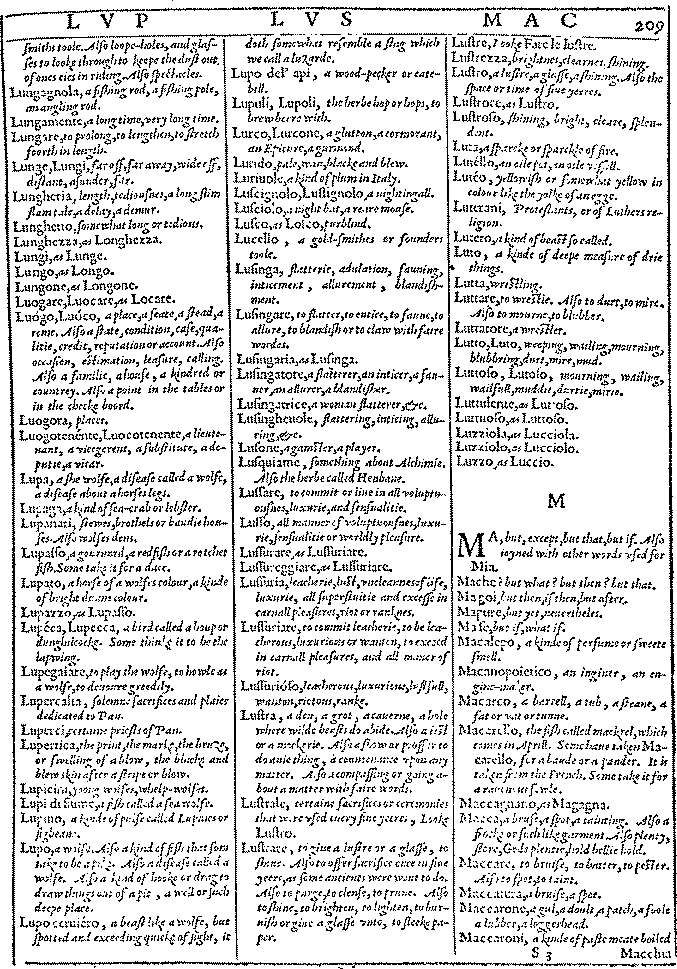 LVP LVS MAC 209
smiths toole. Also loope-holes, and glas-
ses to looke through to keepe the dust out
of ones eies in riding. Also spectacles.
Lungagnola, a fishing rod, a fishing pole,
an angling rod.
Lungamente, a long time, very long time.
Lungare, to prolong, to lengthen, to stretch
foorth in length.
Lunge, Lungi, far off, far away, wide off,
distant, asunder, far.
Lungheria, length, tediousnes, a long
tale, a delay, a demur.
Lungheno, somewhat long or tedious.
Lunghezza, as Longhezza.
Lungi, as Lunge.
Lungo, as Longo.
Lungone, as Longone.
Luogare, Luocare, as Locare.
Luógo, Luóco, a place, a seate, a stead, a
reme. Also a state, condition, case, qua-
litie, credit, reputation or account. Also
occasion, estimation, leasure, calling.
Also a familie, a house, a kindred or
countrey. Also a point in the tables or
in the checke boord.
Luogora, places.
Luogotenente, Luocotenente, a lieute-
nant, a vicegerent, a substitute, a de-
putie, a vicar.
Lupa, a shee wolfe, a disease called a wolfe,
a disease about a horses legs.
Lupaga, a kind of sea-crab or lobster.
Lupanari, stewes, brothels or baudie hou-
ses. Also wolfes dens.
Lupasso, a gournard, a redfish or a rotchet
fish. Some take it for a dace.
Lupato, a horse of a wolfes colour, a kinde
of bright dunne colour.
Lupazzo, as Lupasso.
Lupéca, Lupecca, a bird called a houp or
dunghilcocke. Some thinke it to be the
lapwing.
Lupegaiare, to play the wolfe, to howle as
a wolfe, to devoure greedily.
Lupercalia, solemne sacrifices and plaies
dedicated to Pan.
Luperci, certaine priests of Pan.
Lupertica, the print, the marke, the bruze,
or swelling of a blow, the blacke and
blew skin after a stripe or blow.
Lupicini, yong wolfes, whelp-wolfes.
Lupi di fiume, a fish called a sea wolfe.
Lupino, a kinde of pulse called Lupines or
figbeane.
Lupo, a wolfe. Also a kind of fish that som
take to be a pike. Also a disease called a
wolfe. Also a kind of hooke or drag to
draw things out of a pit, a well or such
deepe place.
Lupo ceruiero, a beast like a wolfe, but
spotted and exceeding quicke of sight, it
doth somewhat resemble a stag which
we call a luzarde.
Lupo del' api, a wood-pecker or eate-
bill.
Lupuli, Lupoli, the herbe hop or hops, to
brew beere with.
Lurco, Lurcone, a glutton, a cormorant,
an Epicure, a gurmand.
Lurido, pale, wan, blacke and blew.
a kinde of plum in Italy.
Luscignolo, Lusignolo, a nightingall.
Lusciolo, a night bat, a reremouse.
Lusco, as Losco, purblind.
Lucello, a gold-smithes or founders
toole.
Lusinga, flatterie, adulation, fauning,
inticement, allurement, blandish-
ment.
Lusingare, to flatter, to entice, to faune, to
allure, to blandish or to claw with faire
wordes.
Lusingaria, as Lusinga.
Lusingatore, a flatterer, an inticer, a fau-
ner, an allurer, a blandisher.
Lusingatrice, a woman flatterer, &c.
Lusingheuole, flattering, inticing, allu-
ring, &c.
Lusone, a gamster, a player.
Lusquiame, something about Alchimie.
Also the herbe called Henbane.
Lussare, to commit or live in all voluptu-
ousnes, luxurie, and sensualitie.
Lusso, all manner of voluptuousnes, luxu-
rie, sensualitie or worldly pleasure.
Lussurare, as Lussuriare.
Lussureggiare, as Lussuriare.
Lussuria, leacherie, lust, uncleannes of life,
luxurie, all superfluitie and excesse in
carnall pleasures, riot or ranknes.
Lussuriare, to commit leacherie, to be lea-
cherous, luxurious or wanton, to exceed
in carnall pleasures, and all maner of
riot.
Lussurióso, leacherous, luxurious, lustfull,
wanton, riotous, ranke.
Lustra, a den, a grot, a caverne, a hole
where wilde beasts do abide. Also a
or a Also a show or proffer to
do anie thing, a countenance upon any
matter. Also a compassing or going a-
bout a matter with faire words.
Lustrale, certaine sacrifices or ceremonies
that were used every five yeeres, Looke
Lustro.
Lustrare, to give a lustre or a glasse, to
shine. Also to offer sacrifice once in five
yeeres, as some ancients were wont to do.
Also to purge, to clense, to prune. Also
to shine, to brighten, to lighten, to bur-
nish or give a glasse unto, to sleeke pa-
per.
Lustre, Looke Fare le lustre.
Lustrezza, brightnes, clearnes, shining.
Lustro, a lustre, a glasse, a shining. Also the
space or time of five yeeres.
Lustroce, as Lustro.
Lustroso, shining, bright, cleare, splen-
dant.
Luta, a sparke or sparckle of fire.
Lutéo, yellowish or somewhat yellow in
colour like the yolke of an egge.
Luterani, Protestants, or of Luthers re-
ligion.
Lutero, a kinde of beast so called.
Luto, a kinde of deepe measure of drie
things.
Lutta, wrestling.
Luttare, to wrestle. Also to durt, to mire.
Also to mourne, to blubber.
Luttatore, a wrestler.
Lutto, Luto, weeping, wailing, mourning,
blubbring, durt, mire, mud.
Luttoso, Lutoso, mourning, wailing,
wailfull, muddie, durtie, mirie.
Lutulente, as Lutoso.
Lutuoso, as Luttoso.
Luzziola, as Lucciola.
Luzziolo, as Lucciolo.
Luzzo, as Luccio.
M
MA, but, except, but that, but if. Also
ioyned with other words used for
Mia.
Mache? but what? but then? but that.
Mapoi, but then, if then, but after.
Mapure, but yet, nevertheles.
Mase, but if, what if.
Macalepo, a kinde of perfume or sweete
smell.
Macanopoietico, an inginer, an en-
gine-maker.
Macarco, a barrell, a tub, a steane, a
fat or vat or tunne.
Macarello, the fish called mackrel, which
comes in Aprill. Some have taken Ma-
carello, for a baude or a pander. It is
taken from the French. Some take it for
Maccagnato, as Magagna.
Macca, a bruise, a spot, a tainting. Also a
frocke or such like garment. Also plenty,
store, Gods plentie, hold bellie hold.
Maccare, to bruise, to batter, to pester.
Also to spot, to taint.
Maccatura, a bruise, a spot.
Maccarone, a gul, a doult, a patch, a foole
a lubber, a loggerhead.
Maccaroni, a kinde of paste meate boiled
S 3 Macchia